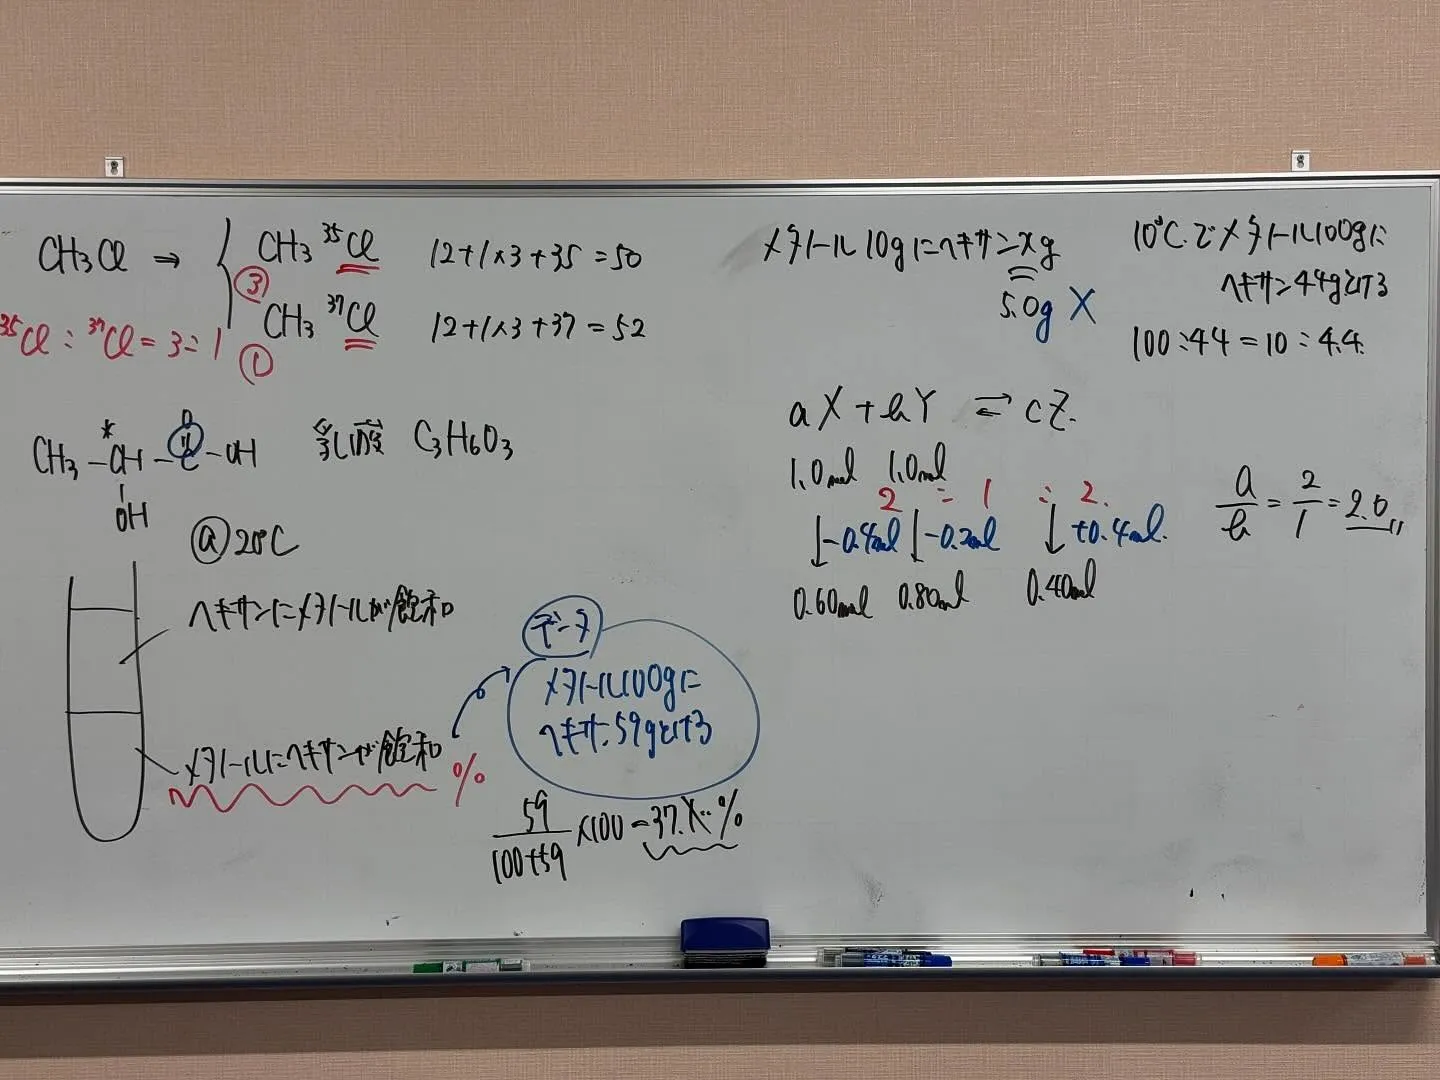 CH3Cl →
CH3 35Cl 12+1×3+35=50
③
CH3 37Cl 12+1×3+37=52
①
35Cl : 37Cl = 3:1
O
CH3-*CH-C-OH 乳酸 C3H6O3
OH
ⓐ20℃
ヘキサンにメタノールが飽和
メタノールにヘキサンが飽和
%
データ
メタノール100gに
ヘキサン59gとける
59
100+59
×100=37.X…%
メタノール10gにヘキサンxg
5.0g X
10℃でメタノール100gに
ヘキサン44gとける
100:44=10:4.4
aX+bY ⇄ cZ
1.0mol 1.0mol
2 : 1 : 2
↓-0.4mol ↓-0.2mol ↓+0.4mol
0.60mol 0.80mol 0.40mol
a/b = 2/1 = 2.0